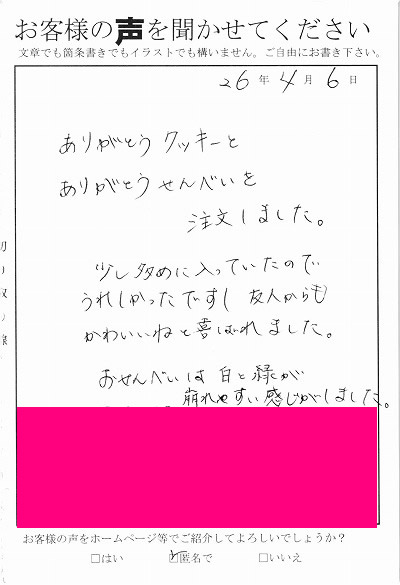 お客様の声を聞かせてください
文章でも箇条書きでもイラストでも構いません。ご自由にお書き下さい。
26年4月6日
ありがとうクッキーと
ありがとうせんべいを
注文しました。
少し多めに入っていたので
うれしかったですし 友人からも
かわいいねと喜ばれました。
おせんべいは 白と緑が
崩れやすい感じがしました。
お客様の声をホームページ等でご紹介してよろしいでしょうか?
□はい ☑匿名で □いいえ